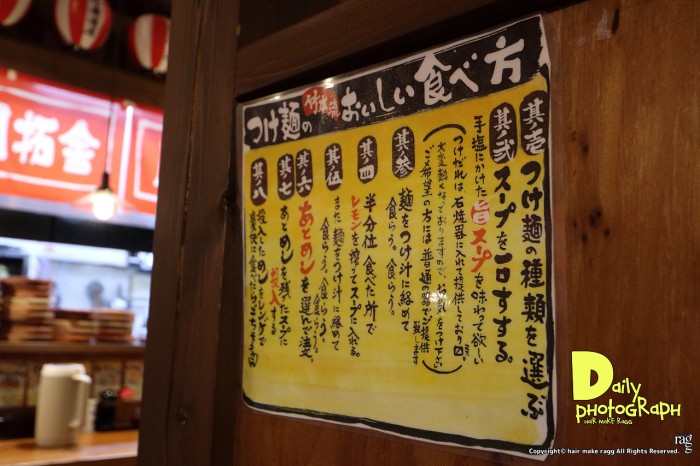 つけ麺の
おいしい食べ方
其ノ壱 つけ麺の種類を選ぶ
其ノ弐 スープを一口すする。
手塩にかけた旨スープを味わって欲しい
（つけだれは石焼器に入れて提供しており
大変熱くなっておりますので、お気をつけ下さい。
ご希望の方には普通の器でご提供致します）
其ノ参 麺をつけ汁に絡めて
食らう。食らう。
其ノ四 半分位食べた所で
レモンを搾ってスープに入れる。
其ノ伍 また麺をつけ汁に絡めて
食らう。食らう。食らう。
其ノ六 あとめしを選んで注文。
其ノ七 あとめしを残たスープに
お投入する
其ノ八 投入しためしをレンゲで
豪快に食べたらごちそうさん
拓金
Daily
photoGRaph
HAiR MAKE RAGG
rag
Copyright© hair make ragg All Rights Reserved.